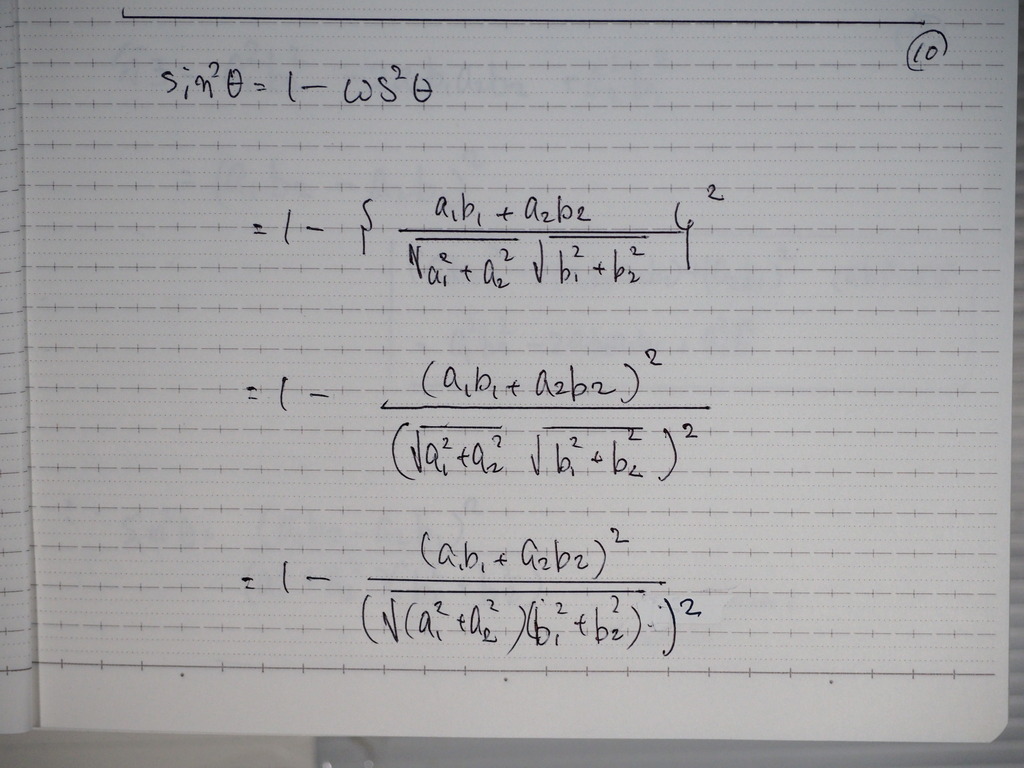 ⑩
sin²θ = 1 - cos²θ
= 1 - { (a₁b₁ + a₂b₂) / (√(a₁² + a₂²) √(b₁² + b₂²)) }²
= 1 - (a₁b₁ + a₂b₂)² / (√(a₁² + a₂²) √(b₁² + b₂²))²
= 1 - (a₁b₁ + a₂b₂)² / (√((a₁² + a₂²)(b₁² + b₂²)))²